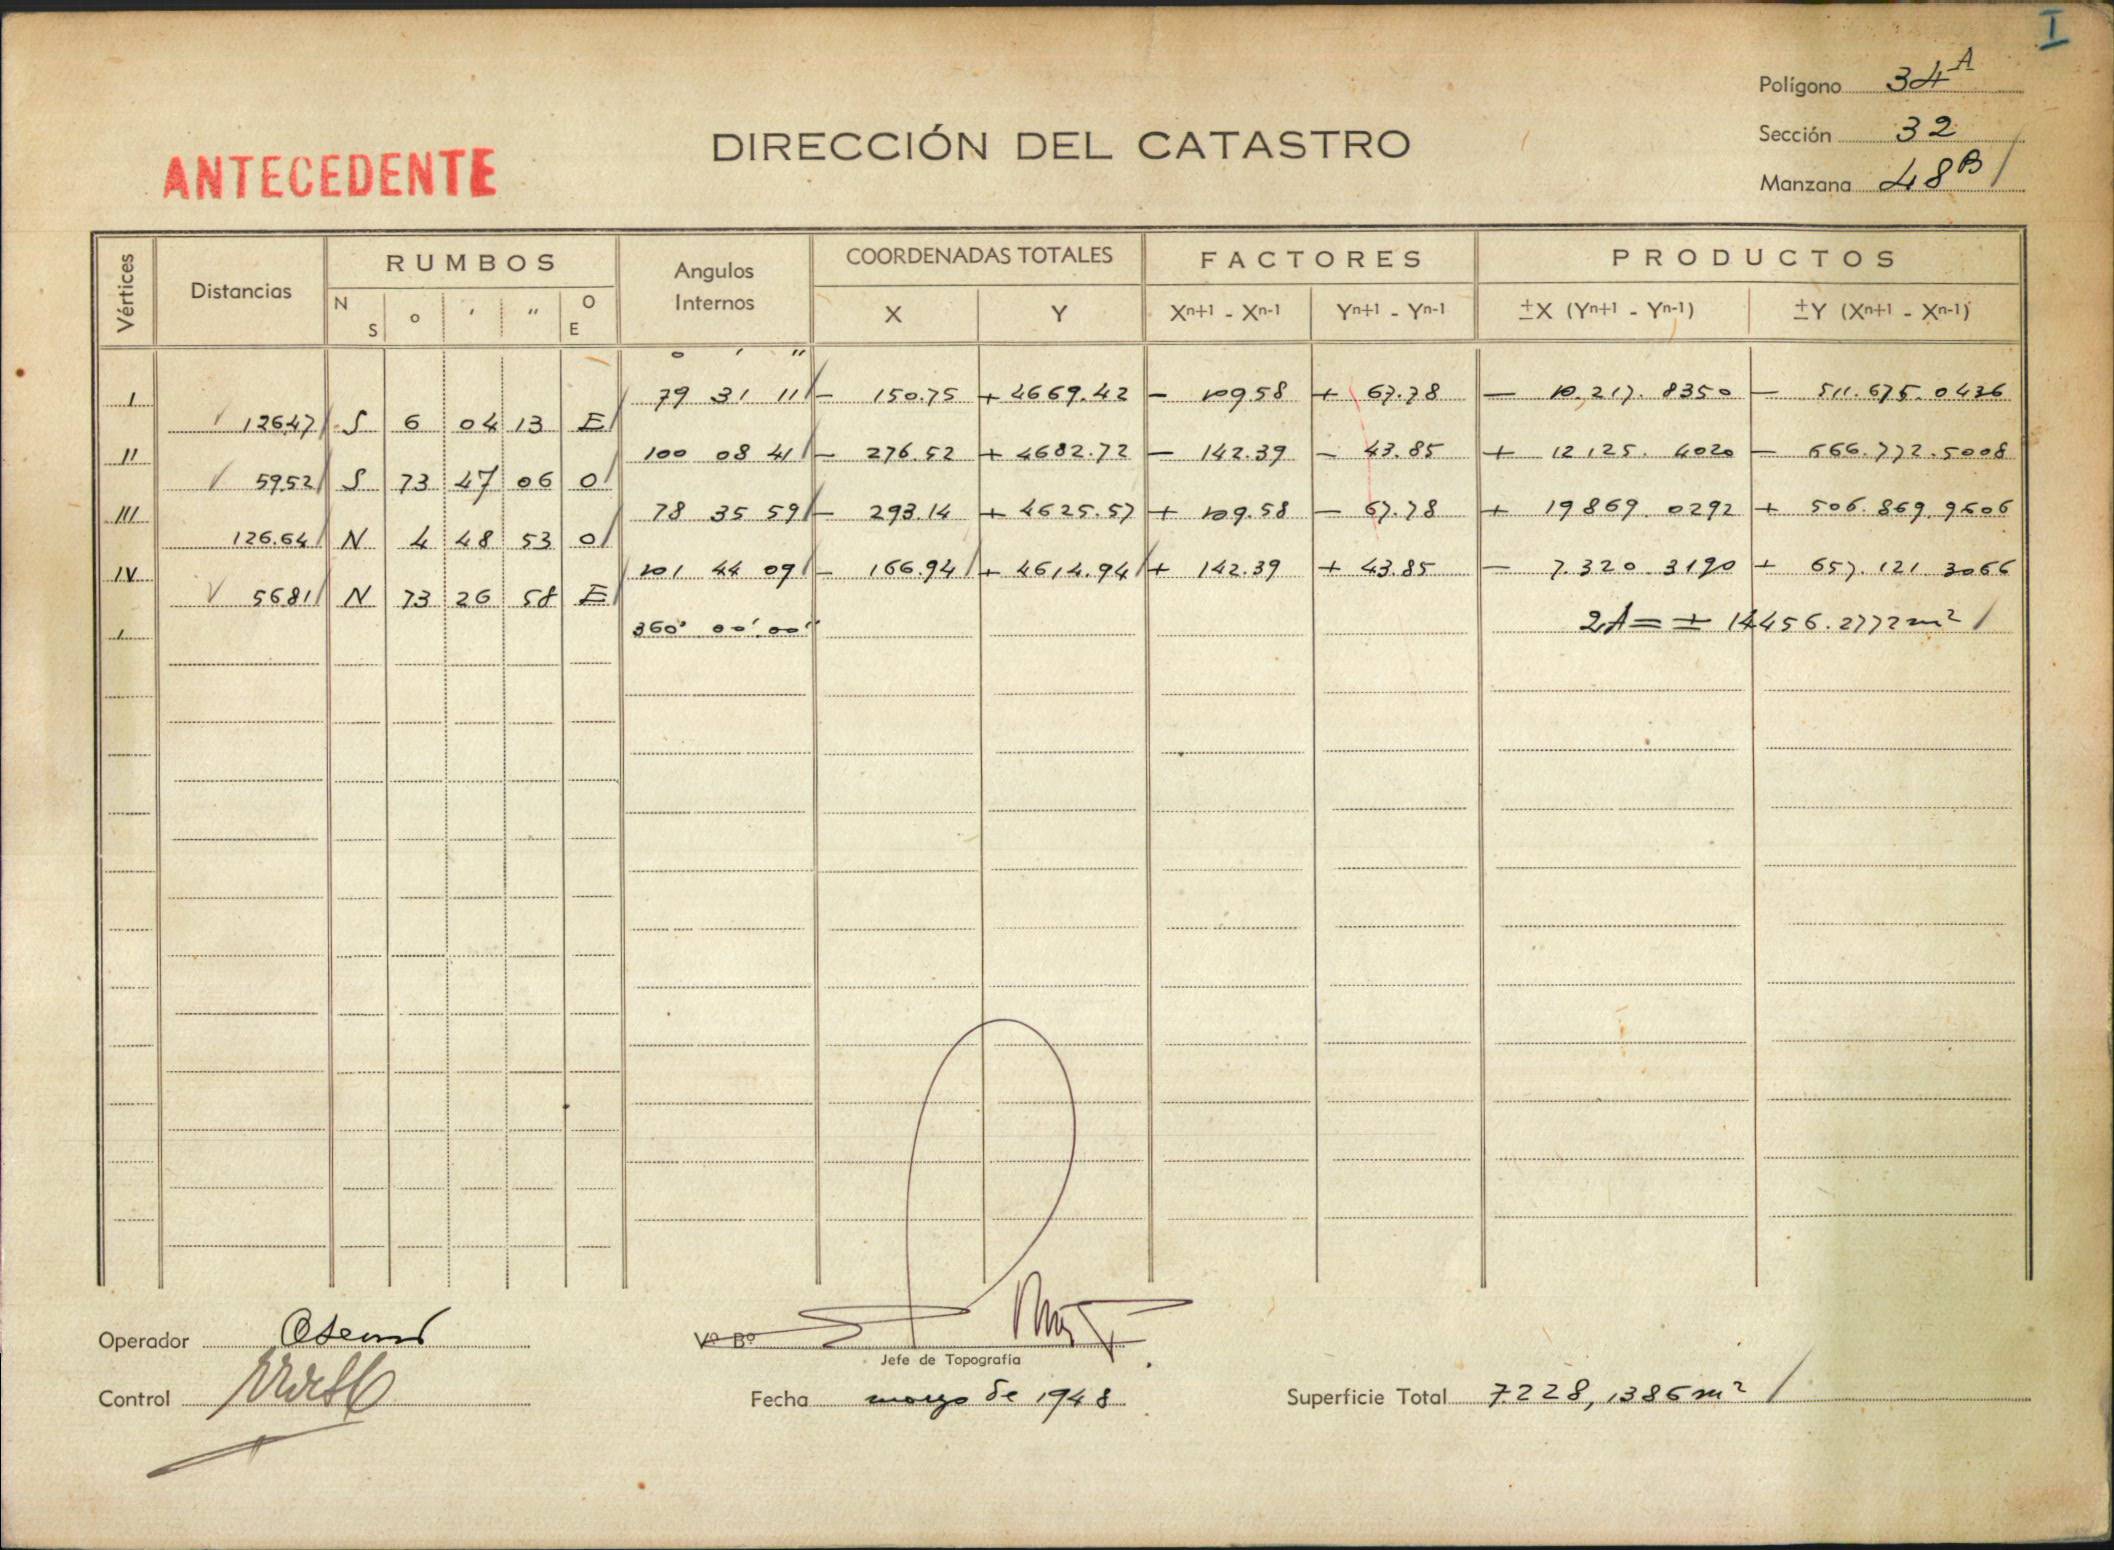 I
Polígono 34 A
Sección 32
Manzana 48 B /
ANTECEDENTE
DIRECCIÓN DEL CATASTRO
Vértices Distancias RUMBOS Angulos Internos COORDENADAS TOTALES FACTORES PRODUCTOS
N S o ' " O E X Y Xn+1 - Xn-1 Yn+1 - Yn-1 ±X (Yn+1 - Yn-1) ±Y (Xn+1 - Xn-1)
o ' "
I 79 31 11 - 150.75 + 4669.42 - 109.58 + 67.78 - 10.217.8350 - 511.675.0436
126.47 S 6 04 13 E
II 100 08 41 - 276.52 + 4682.72 - 142.39 - 43.85 + 12125.4020 - 666.772.5008
59.52 S 73 47 06 O
III 78 35 59 - 293.14 + 4625.57 + 109.58 - 67.78 + 19869.0292 + 506.869.9606
126.64 N 4 48 53 O
IV 101 44 09 - 166.94 + 4614.94 + 142.39 + 43.85 - 7.320.3190 + 657.121.3066
56.81 N 73 26 58 E
I 360° 00' 00" 2A = ± 14456.2772 m² /
Operador
Vº Bº
Jefe de Topografía
Control
Fecha marzo de 1948
Superficie Total 7.228,1386 m² /